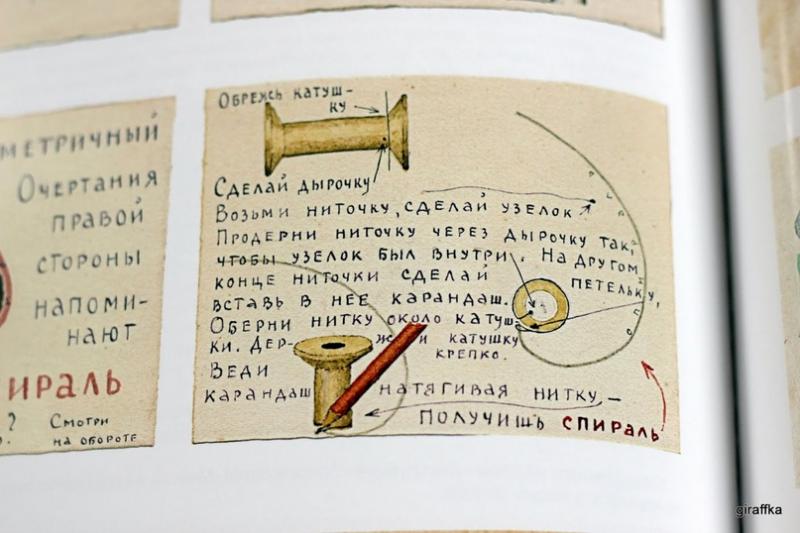 МЕТРИЧНЫЙ
ОЧЕРТАНИЯ
ПРАВОЙ
СТОРОНЫ
НАПОМИ-
НАЮТ
ПИРАЛЬ
?
СМОТРИ
НА ОБОРОТЕ
ОБРЕЖЬ КАТУШ-
КУ
СДЕЛАЙ ДЫРОЧКУ
ВОЗЬМИ НИТОЧКУ, СДЕЛАЙ УЗЕЛОК
ПРОДЕРНИ НИТОЧКУ ЧЕРЕЗ ДЫРОЧКУ ТАК,
ЧТОБЫ УЗЕЛОК БЫЛ ВНУТРИ. НА ДРУГОМ
КОНЦЕ НИТОЧКИ СДЕЛАЙ ПЕТЕЛЬКУ,
ВСТАВЬ В НЕЕ КАРАНДАШ.
ОБЕРНИ НИТКУ ОКОЛО КАТУШ-
КИ. ДЕР- ЖИ КАТУШКУ
КРЕПКО.
ВЕДИ
КАРАНДАШ НАТЯГИВАЯ НИТКУ, —
ПОЛУЧИШЬ СПИРАЛЬ
giraffka